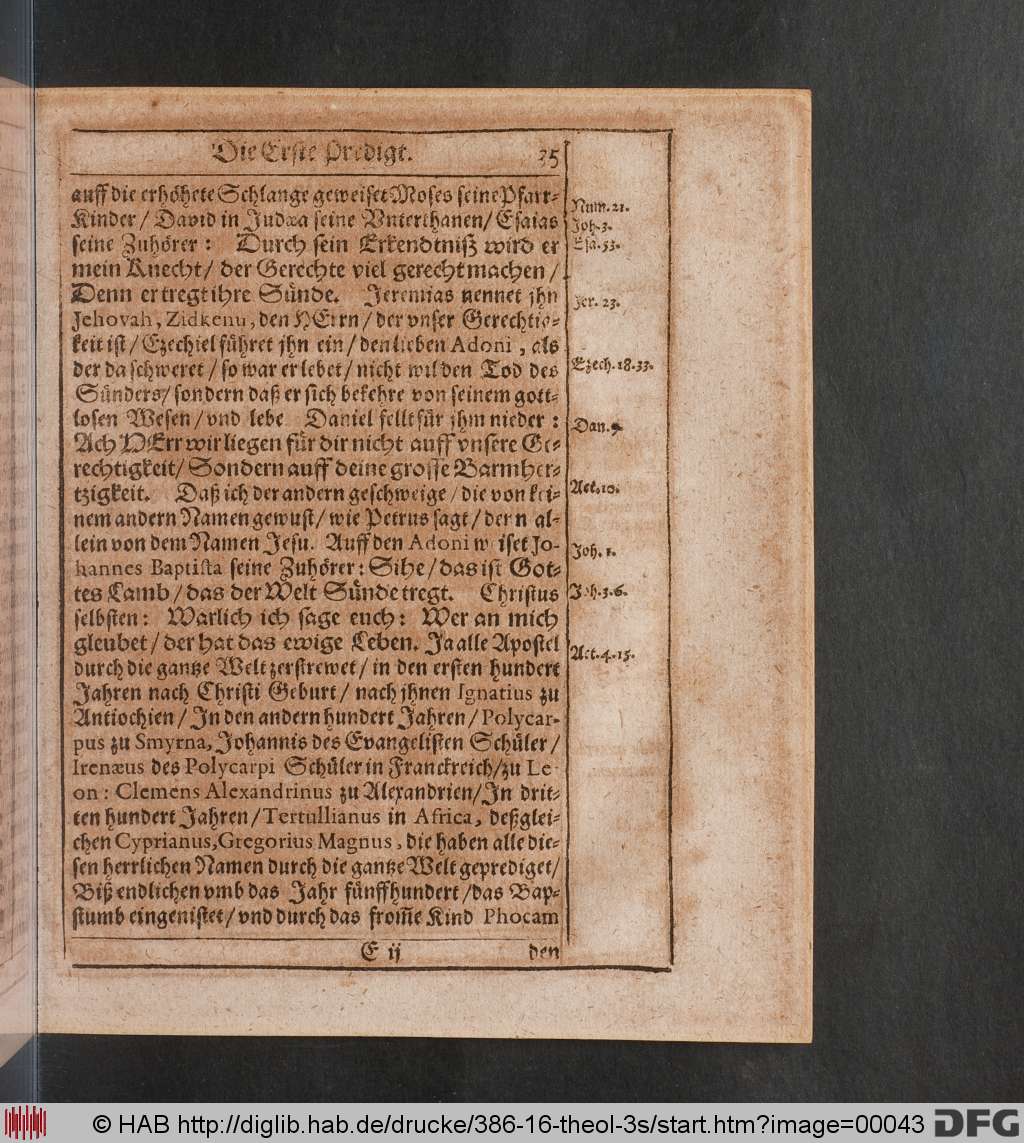 Die Erste Predigt. 35
auff die erhöhete Schlange geweiset Moses seine Pfarr-
Kinder / David in Judæa seine Vnterthanen / Esaias
seine Zuhörer: Durch sein Erkendtniß wird er
mein Knecht / der Gerechte viel gerecht machen /
Denn er tregt ihre Sünde. Jeremias nennet jhn
Jehovah, Zidkenu, den HErrn / der vnser Gerechtig-
keit ist / Ezechiel führet jhn ein / den lieben Adoni, als
der da schweret / so war er lebet / nicht wil den Tod des
Sünders / sondern daß er sich bekehre von seinem gott-
losen Wesen / vnd lebe Daniel fellt für jhm nieder:
Ach HErr wir liegen für dir nicht auff vnsere Ge-
rechtigkeit / Sondern auff deine grosse Barmher-
tzigkeit. Daß ich der andern geschweige / die von kei-
nem andern Namen gewust / wie Petrus sagt / denn al-
lein von dem Namen Jesu. Auff den Adoni weiset Jo-
hannes Baptista seine Zuhörer: Sihe / das ist Got-
tes Lamb / das der Welt Sünde tregt. Christus
selbsten: Warlich ich sage euch: Wer an mich
gleubet / der hat das ewige Leben. Ja alle Apostel
durch die gantze Welt zerstrewet / in den ersten hundert
Jahren nach Christi Geburt / nach jhnen Ignatius zu
Antiochien / In den andern hundert Jahren / Polycar-
pus zu Smyrna, Johannis des Evangelisten Schüler /
Irenæus des Polycarpi Schüler in Franckreich / zu Le-
on: Clemens Alexandrinus zu Alexandrien / In drit-
ten hundert Jahren / Tertullianus in Africa, deßglei-
chen Cyprianus, Gregorius Magnus, die haben alle die-
sen herrlichen Namen durch die gantze Welt geprediget /
Biß endlichen vmb das Jahr fünffhundert / das Bap-
stumb eingenistet / vnd durch das from̃e Kind Phocam
E ij den
Num. 21.
Joh. 3.
Esa. 53.
Jer. 23.
Ezech. 18. 33.
Dan. 9
Act. 10.
Joh. 1.
Joh. 3. 6.
Act. 4. 15.
© HAB http://diglib.hab.de/drucke/386-16-theol-3s/start.htm?image=00043 DFG